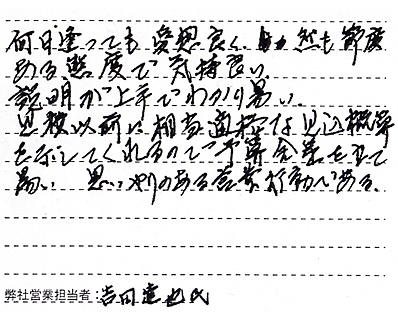 何日逢っても愛想良く、然も節度
ある態度で気持良い。
説明が上手でわかり易い。
見積以前に相当適確な見込概算
を示してくれるので予算企業を立て
易い 思いやりのある営業行動である。
弊社営業担当者：吉田達也氏